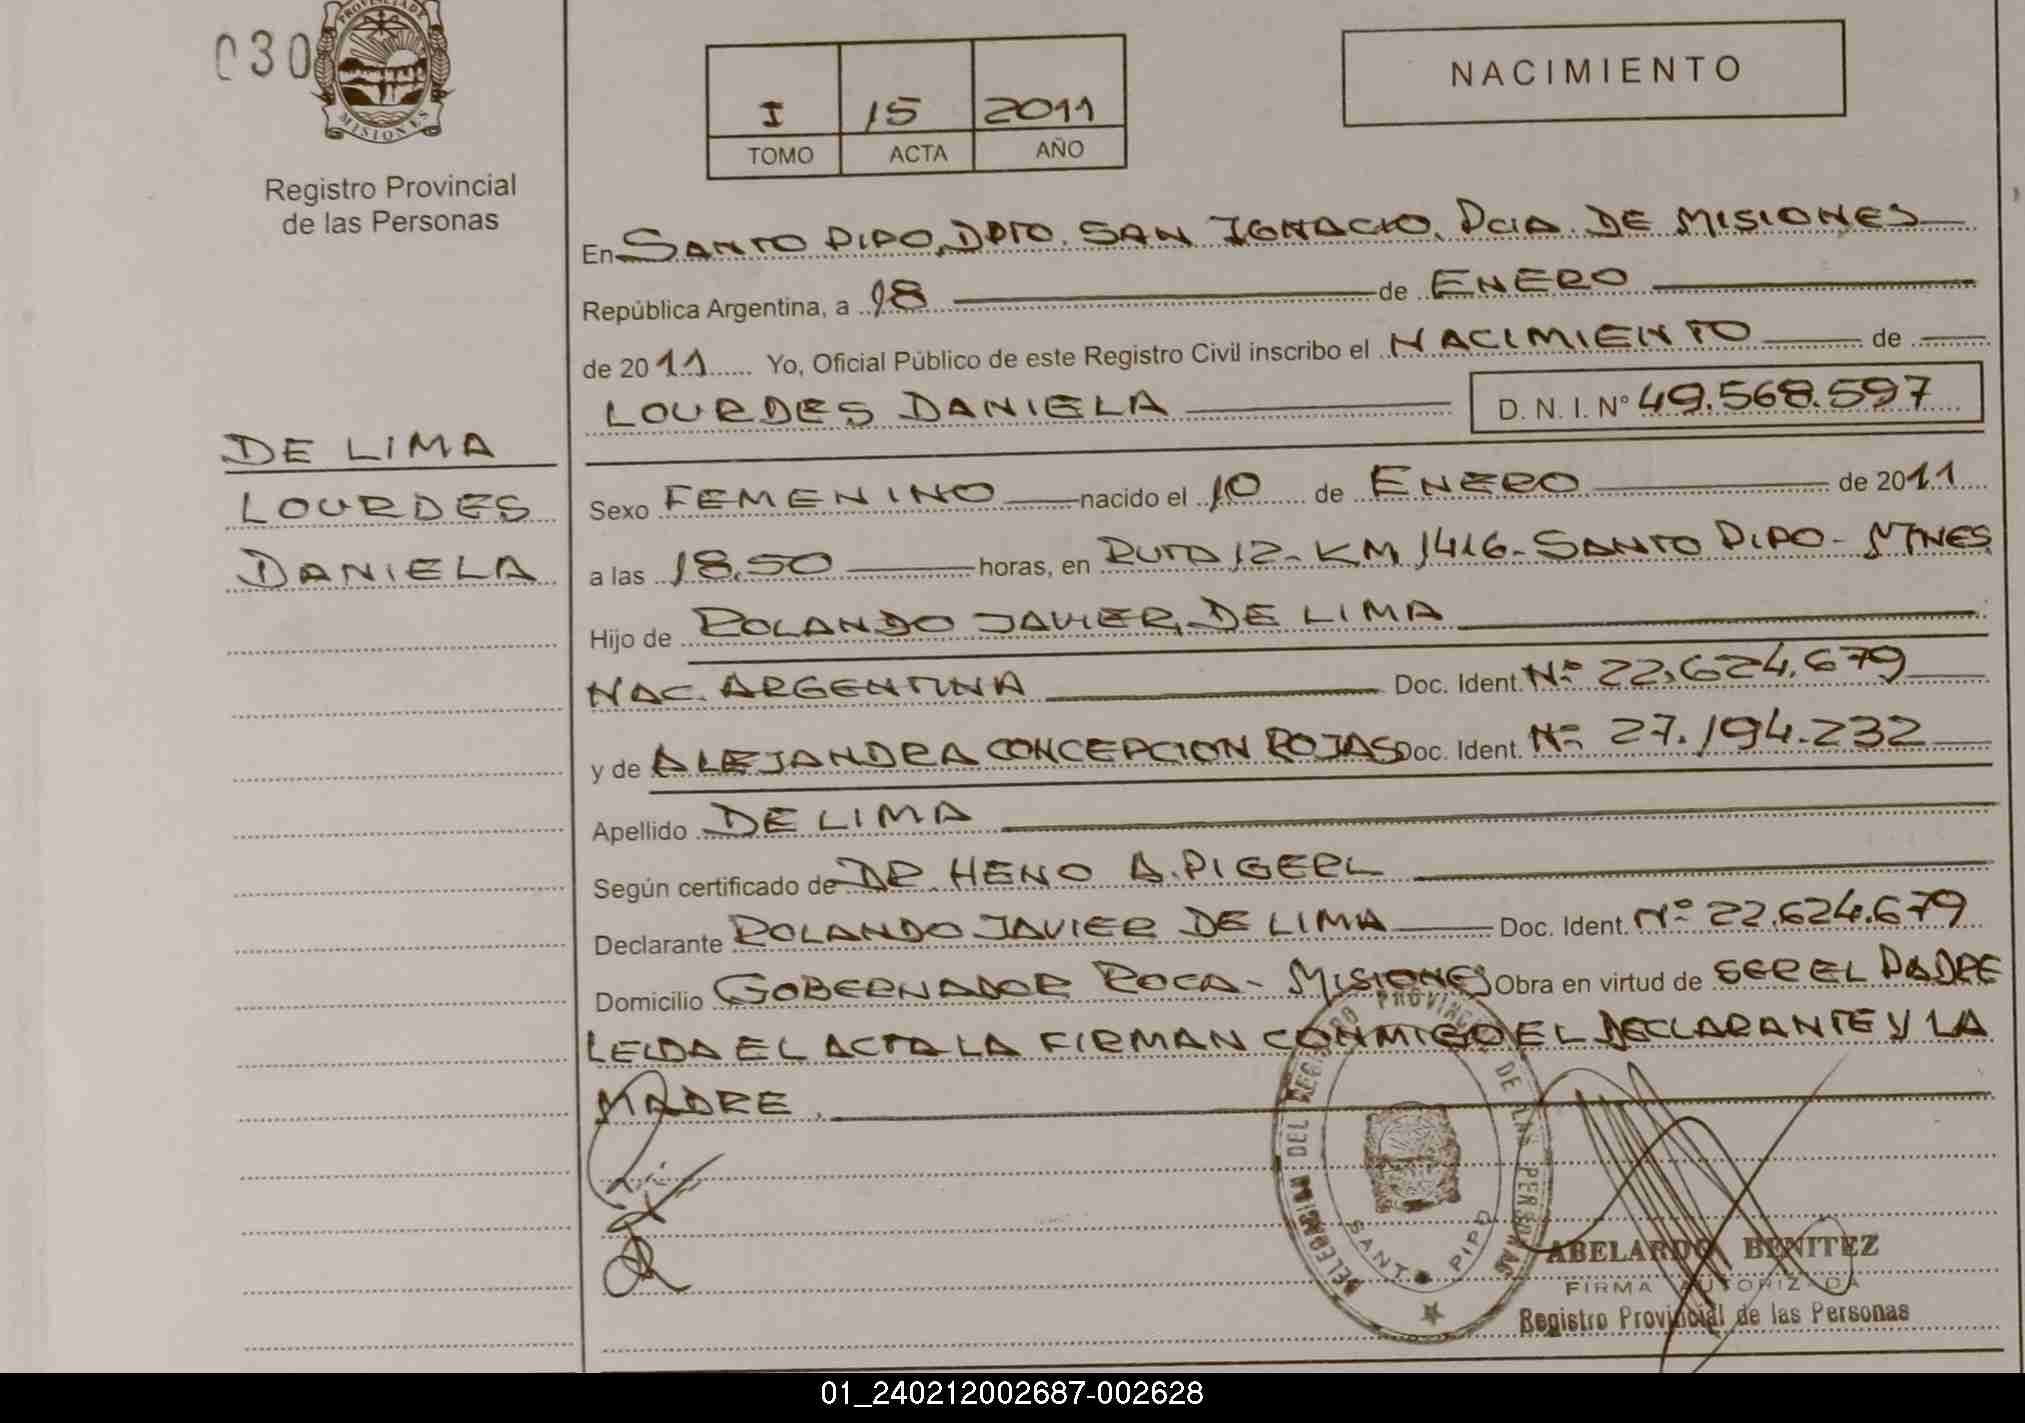 030
PROVINCIA DE
MISIONES
Registro Provincial
de las Personas
I 15 2011
TOMO ACTA AÑO
NACIMIENTO
En SANTO PIPO, DPTO. SAN IGNACIO, PCIA. DE MISIONES
República Argentina, a 18 de ENERO
de 2011 Yo, Oficial Público de este Registro Civil inscribo el NACIMIENTO de
LOURDES DANIELA D. N. I. N° 49.568.597
DE LIMA
LOURDES
DANIELA
Sexo FEMENINO nacido el 10 de ENERO de 2011
a las 18,50 horas, en RUTA 12 - KM 1416 - SANTO PIPO - MNES
Hijo de ROLANDO JAVIER, DE LIMA
NAC. ARGENTINA Doc. Ident. Nº 22.624.679
y de ALEJANDRA CONCEPCION ROJAS Doc. Ident. Nº 27.194.232
Apellido DE LIMA
Según certificado de DR. HENO A. PIGERL
Declarante ROLANDO JAVIER DE LIMA Doc. Ident. Nº 22.624.679
Domicilio GOBERNADOR ROCA - MISIONES Obra en virtud de SER EL PADRE
LEIDA EL ACTA LA FIRMAN CONMIGO EL DECLARANTE Y LA
MADRE.
DELEGACION DEL REGISTRO PROVINCIAL DE LAS PERSONAS
SANTO PIPO
ABELARDO BENITEZ
FIRMA AUTORIZADA
Registro Provincial de las Personas
01_240212002687-002628